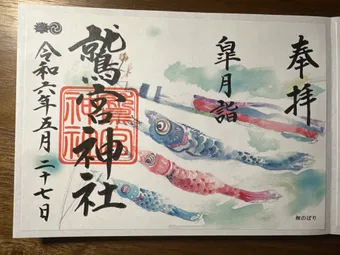 奉拝
皐月詣
鷲宮神社
令和六年五月二十七日
鯉のぼり